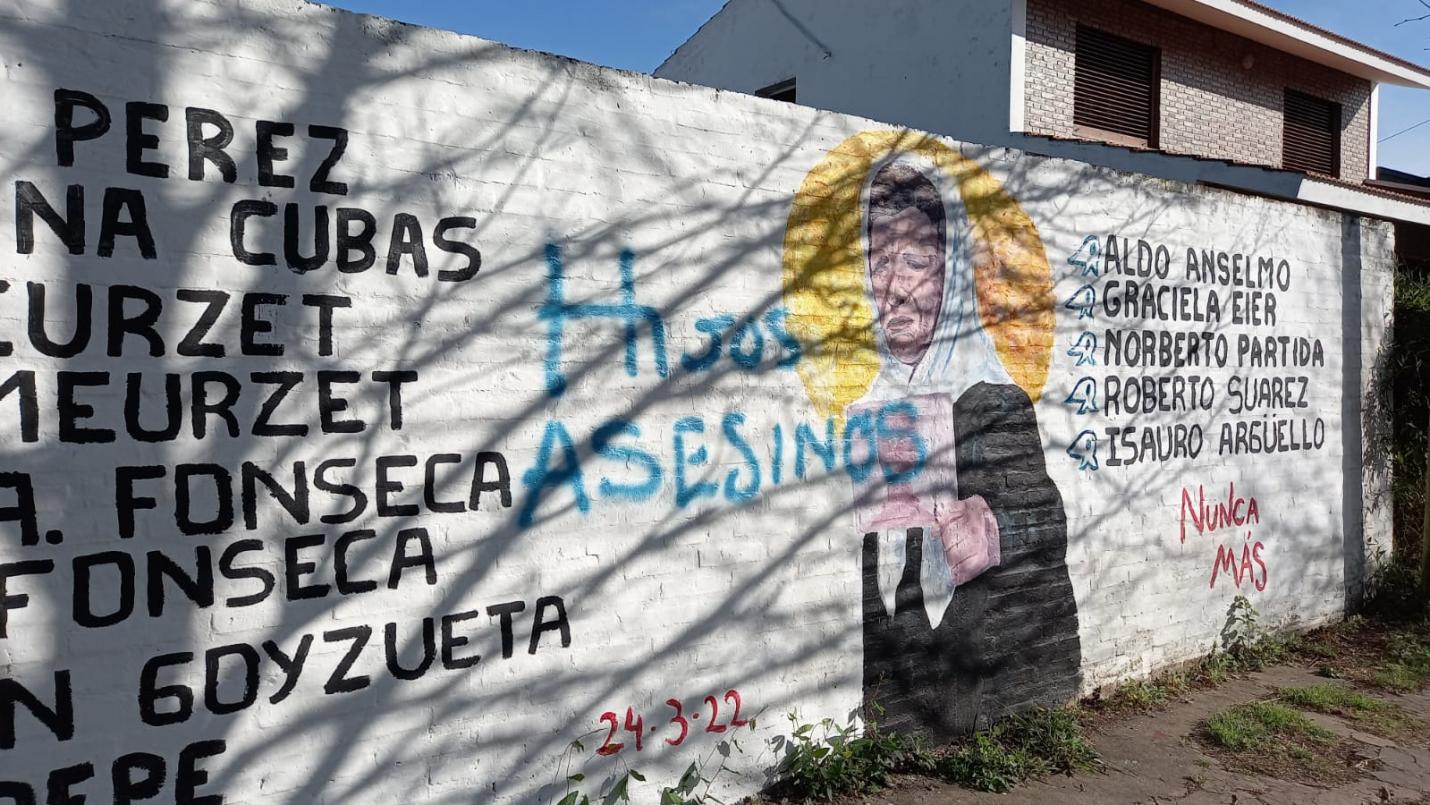 PEREZ
NA CUBAS
EURZET
MEURZET
A. FONSECA
FONSECA
N GOYZUETA
PEPE
HIJOS
ASESINOS
24.3.22
ALDO ANSELMO
GRACIELA EIER
NORBERTO PARTIDA
ROBERTO SUAREZ
ISAURO ARGÜELLO
NUNCA
MÁS